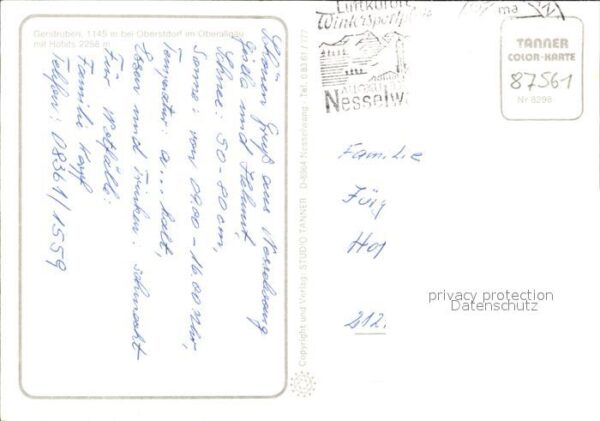 Gerstruben, 1145 m bei Oberstdorf im Oberallgäu
mit Höfats 2258 m
Schönen Gruß aus Nesselwang
Gisela und Helmut,
Schnee: 50-80cm,
Sonne: von 09.00-16.00 Uhr,
Temperatur: a... kalt,
Essen und Trinken: schmeckt
Für Notfälle:
Familie
Telefon: 08361/1559
Copyright und Verlag: STUDIO TANNER D-8964 Nesselwang - Tel. 0 83 61 / 777
Luftkurort
Wintersportplatz
Nesselw
TANNER
COLOR-KARTE
87561
Nr 8298
Familie
Jürg
Hof
privacy protection
Datenschutz
212.